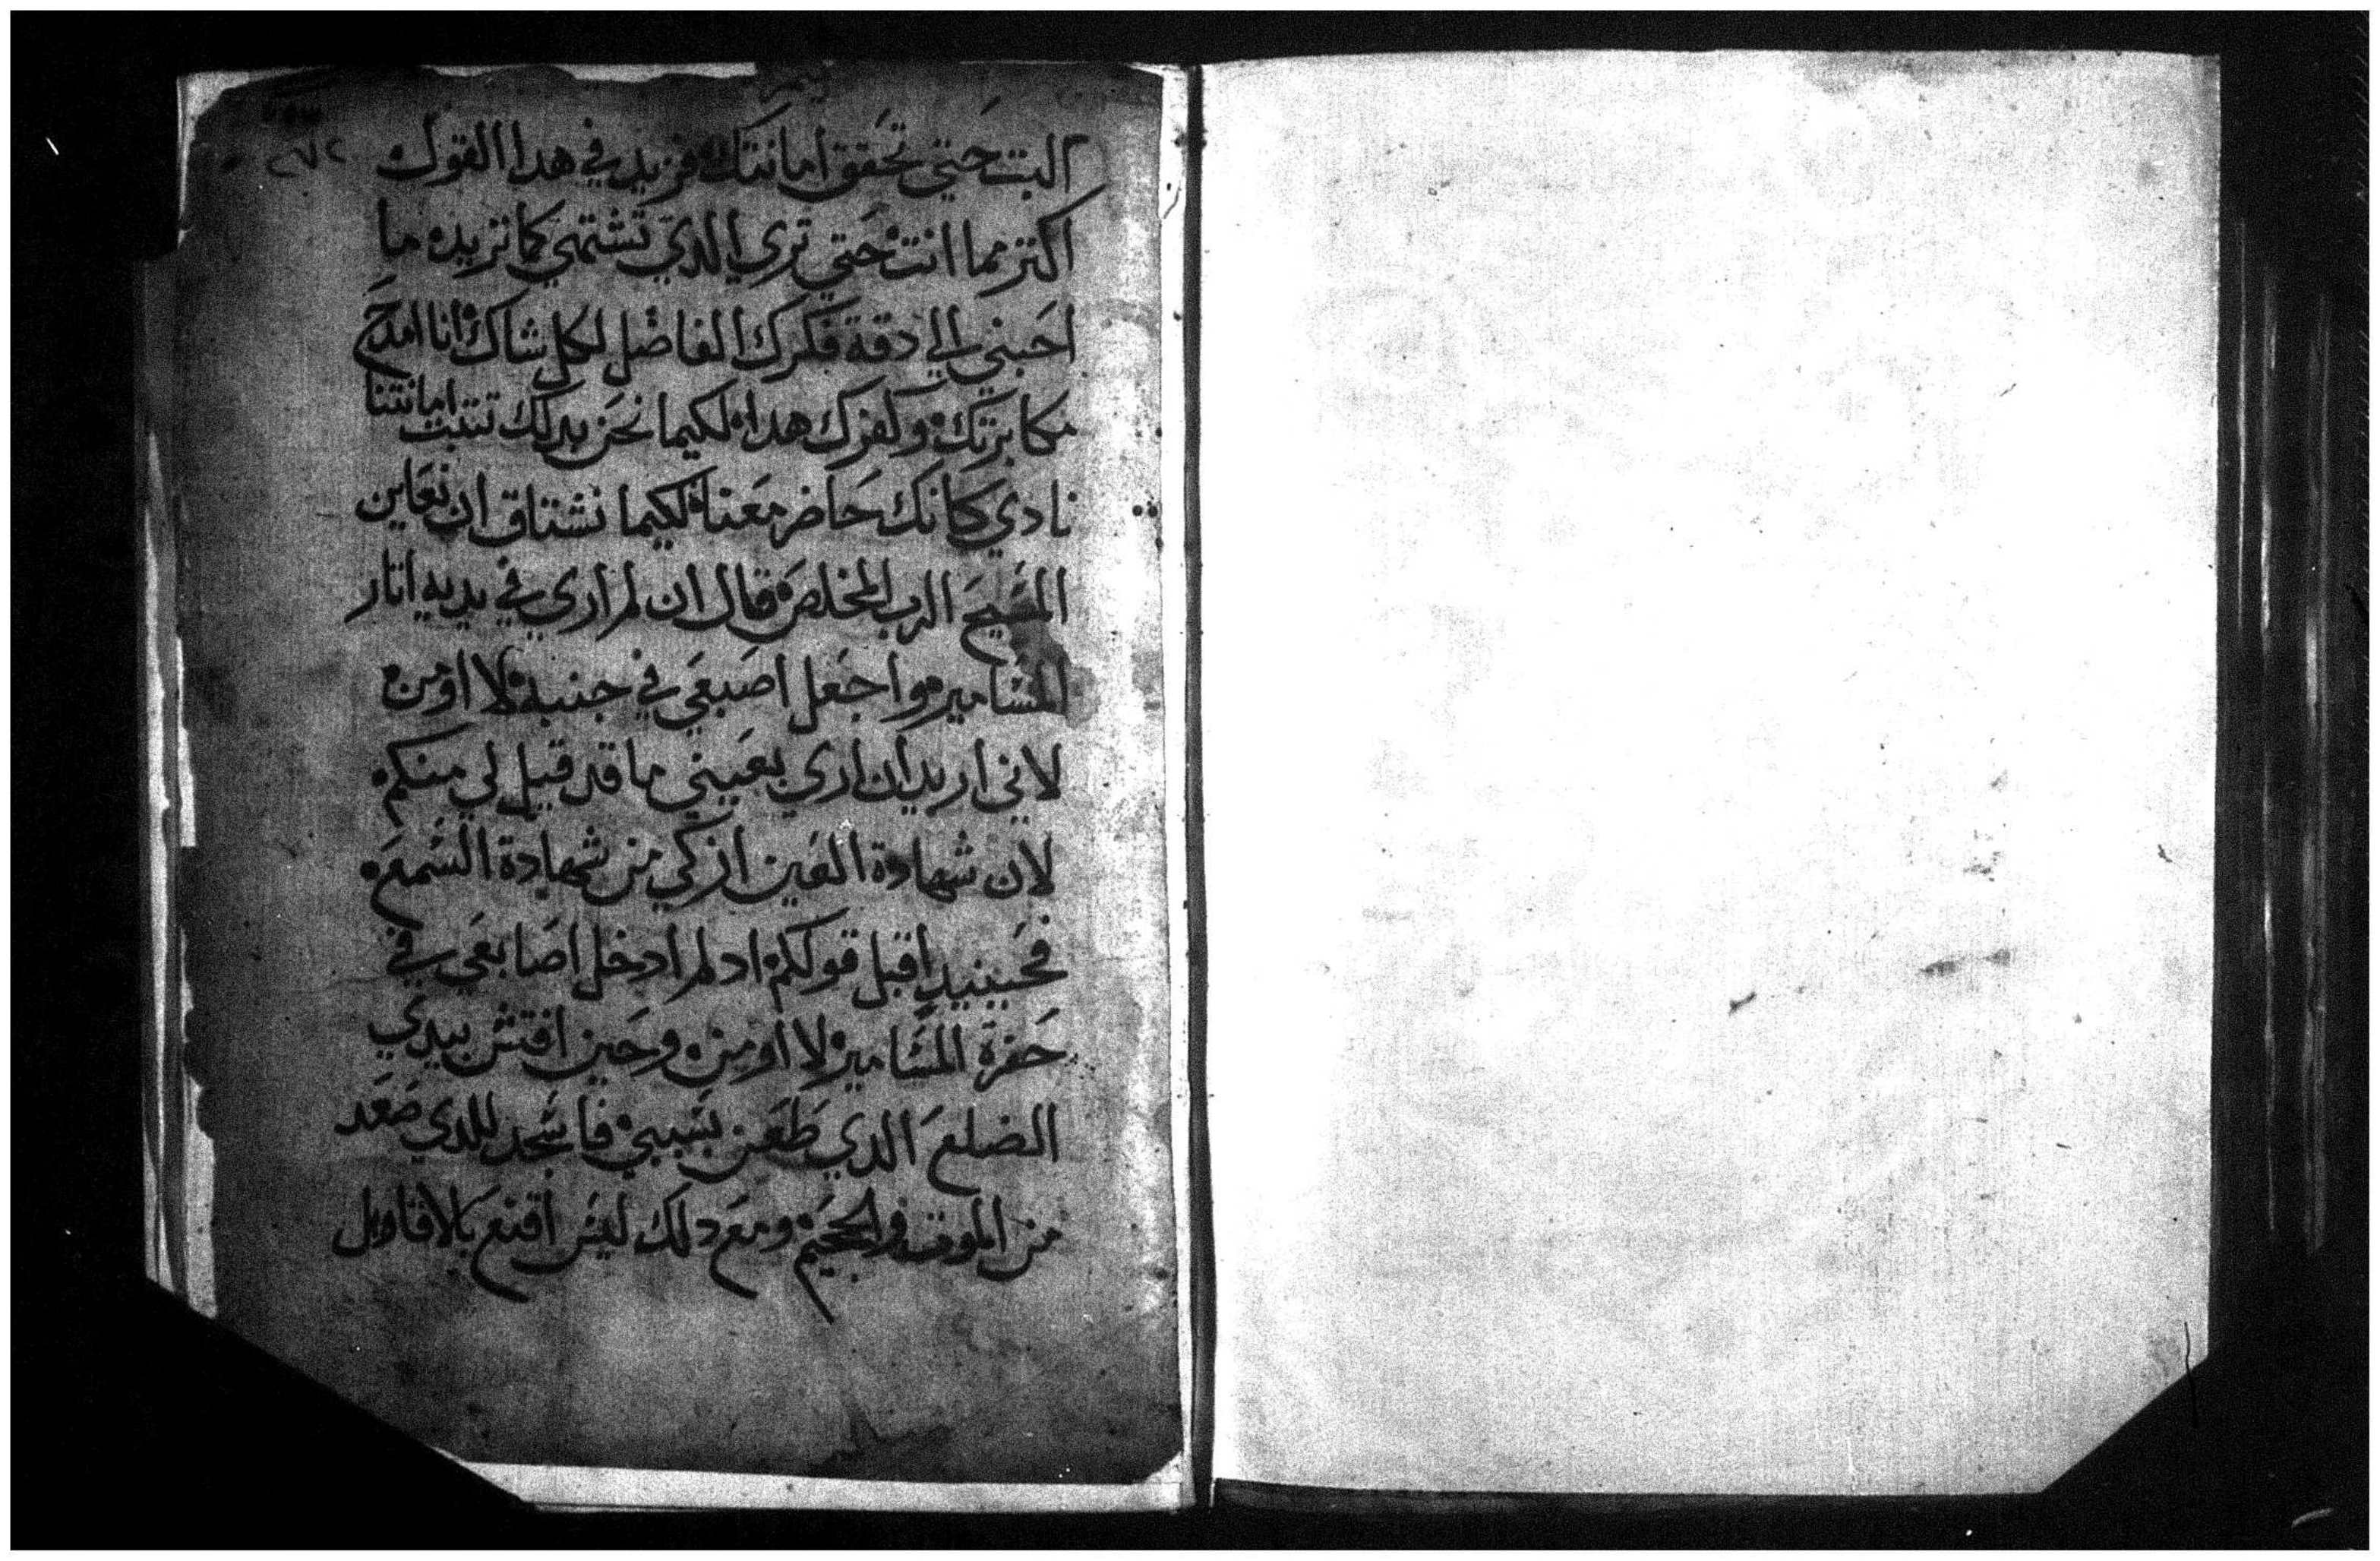 البت حتي تحقق امانتك فزيد في هدا القول
اكتر مما انت حتي تري الدي تشتهي كما تريده ما
احبني الي دقة فكرك الفاضل لكل شاك انا امدح
مكابرتك وكفرك هدا لكيما نحن بدلك تتبت امانتنا
نادي كانك حاضر معنا لكيما نشتاق ان نعاين
المسيح الرب المخلص قال ان لم اري في يديه اتار
المسامير واجعل اصبعي في جنبه لا اومن
لاني اريد ان اري بعيني ما قد قيل لي منكم
لان شهادة العين ازكي من شهادة السمع
فحينيد اقبل قولكم اد لم ادخل اصابعي في
حفرة المسامير لا اومن وحين افتش بيدي
الضلع الدي طعن بسببي فاسجد للدي صعد
من الموت والجحيم ومع دلك ليس اقنع بالاقاويل